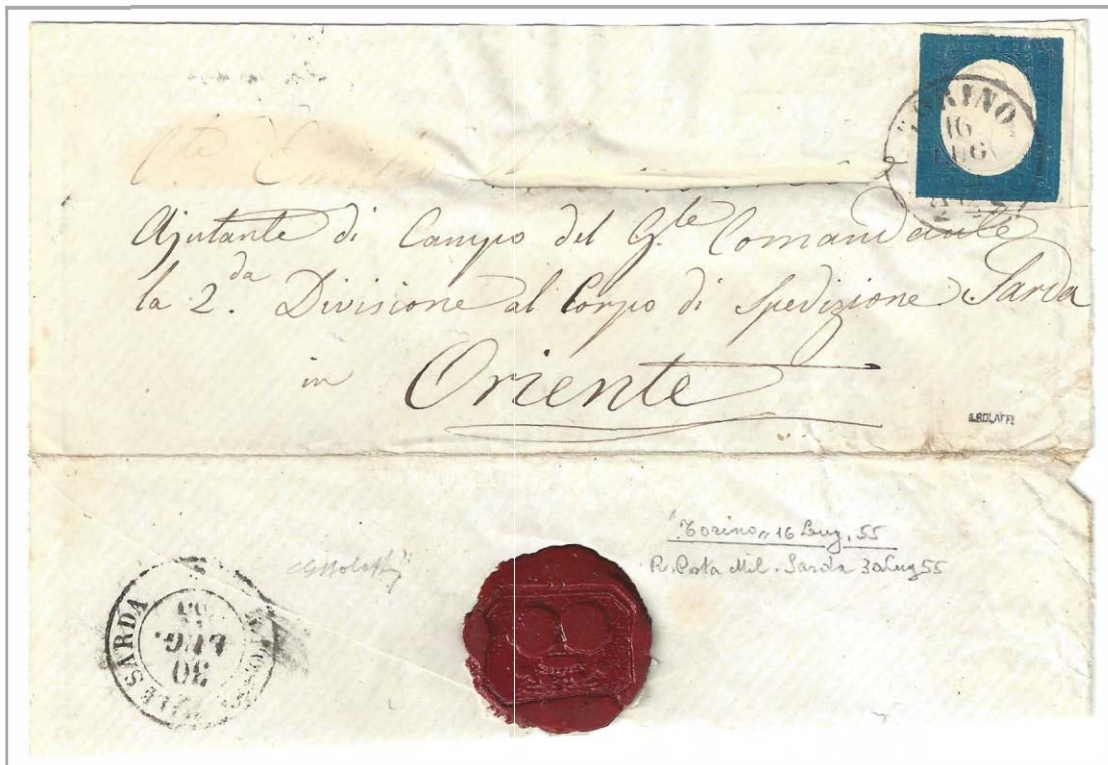 TORINO
16
LUG
Ajutante di Campo del G.le Comandante
la 2.da Divisione al Corpo di Spedizione Sarda
in Oriente
"Torino" 16 Lug, 55
R. Posta Mil. Sarda 30 Lug 55
LE SARDA
55
LUG.
30